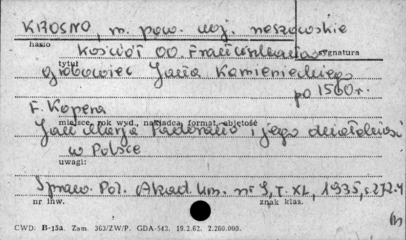 KROSNO, m. pow. woj. rzeszowskie
hasło
Kościół OO. Franciszkanów sygnatura
tytuł
grobowiec Jana Kamienieckiego
po 1560 r.
F. Kopera
miejsce, rok wyd., nakładca, format, objętość
Jan Maria Padovano i jego działalność
w Polsce
uwagi:
Spraw. Pol. Akad. Um. nr 9, T. XL, 1935, s. 272-4
nr inw. znak klas.
CWD. B-15a. Zam. 363/ZW/P. GDA-543. 19.2.62. 2.200.000.